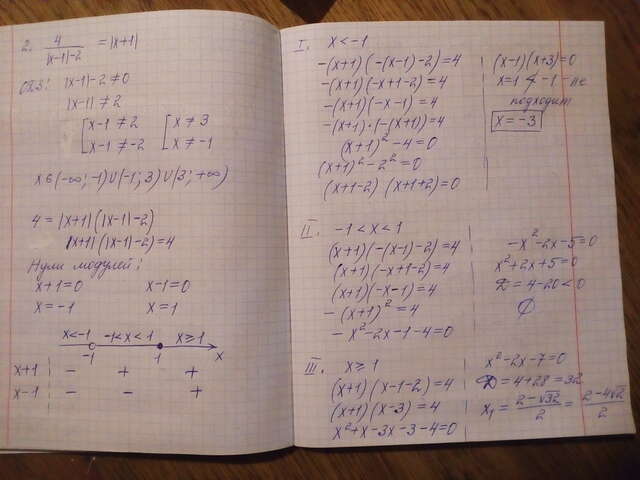 2. 4/(|x-1|-2) = |x+1|
ОДЗ: |x-1|-2≠0
|x-1|≠2
[x-1≠2 [x≠3
[x-1≠-2 [x≠-1
x∈(-∞; -1)∪(-1; 3)∪(3; +∞)
4 = |x+1|(|x-1|-2)
|x+1|(|x-1|-2)=4
Нули модулей:
x+1=0 x-1=0
x=-1 x=1
x<-1 -1<x<1 x≥1
-1 1 x
x+1 - + +
x-1 - - +
I. x<-1
-(x+1)(-(x-1)-2)=4
-(x+1)(-x+1-2)=4
-(x+1)(-x-1)=4
-(x+1)·(-(x+1))=4
(x+1)²-4=0
(x+1)²-2²=0
(x+1-2)(x+1+2)=0
(x-1)(x+3)=0
x=1 ≮ -1 - не
подходит
x=-3
II. -1<x<1
(x+1)(-(x-1)-2)=4
(x+1)(-x+1-2)=4
(x+1)(-x-1)=4
-(x+1)²=4
-x²-2x-1-4=0
-x²-2x-5=0
x²+2x+5=0
D=4-20<0
∅
III. x≥1
(x+1)(x-1-2)=4
(x+1)(x-3)=4
x²+x-3x-3-4=0
x²-2x-7=0
D=4+28=32
x₁=(2-√32)/2=(2-4√2)/2